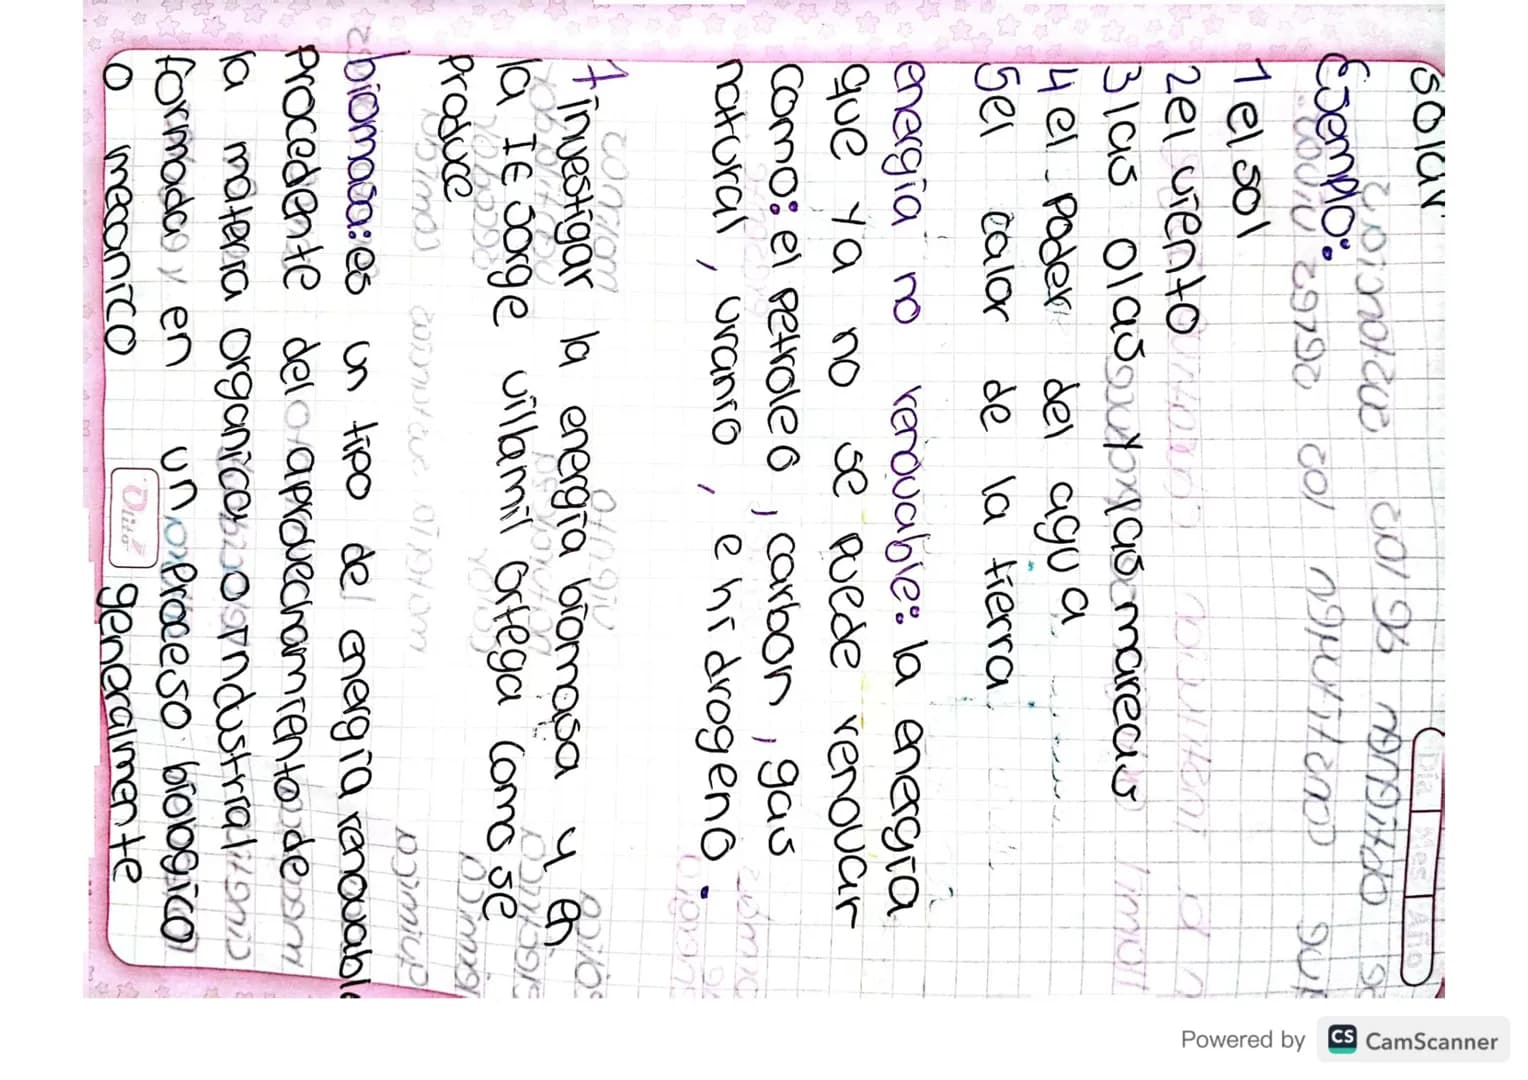 solar
Día Mes Año
Ejemplo:
1 el sol
2 el viento
3 las olas y las mareas
4 el poder del agua
5 el calor de la tierra
energía no renovable: la energía
que ya no se puede renovar
como: el petroleo, carbon, gas
natural, uranio, e hidrogeno.
1 investigar la energía biomasa y en
la IE Jorge villamil ortega como se
produce
biomasa: es un tipo de energía renovable
procedente del aprovechamiento de
la materia organica o industrial
formada en un proceso biologico
o mecanico generalmente
Powered by CS CamScanner